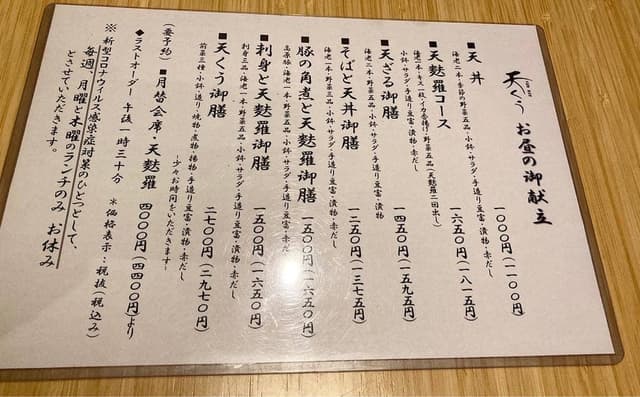 天くう お昼の御献立
■天丼 一〇〇〇円(一一〇〇円)
海老二本・季節の野菜五品・小鉢・サラダ・手造り豆富・漬物・赤だし
■天麩羅コース 一六五〇円(一八一五円)
海老二本・キス一枚・イカ香揚げ・野菜五品(天麩羅二回出し)
小鉢・サラダ・手造り豆富・漬物・赤だし
■天ざる御膳 一四五〇円(一五九五円)
海老二本・野菜五品・小鉢・サラダ・手造り豆富・漬物
■そばと天丼御膳 一二五〇円(一三七五円)
海老一本・野菜五品・小鉢・サラダ・手造り豆富・漬物・赤だし
■豚の角煮と天麩羅御膳 一五〇〇円(一六五〇円)
豚・海老一本・野菜五品・小鉢・サラダ・手造り豆富・赤だし
■刺身と天麩羅御膳 一五〇〇円(一六五〇円)
刺身三品・海老一本・野菜五品・小鉢・サラダ・手造り豆富・漬物・赤だし
■天くう御膳 二七〇〇円(二九七〇円)
前菜三種・小鉢・造り・焼物・煮物・揚物・手造り豆富・漬物・赤だし
―少々お時間をいただきます―
(要予約) ■月替会席・天麩羅 四〇〇〇円(四四〇〇円)より
◆ラストオーダー 午後一時三十分 *価格表示:税抜(税込み)
※新型コロナウィルス感染症対策のひとつとして、
毎週、月曜と木曜のランチのみ お休み
とさせていただきます。